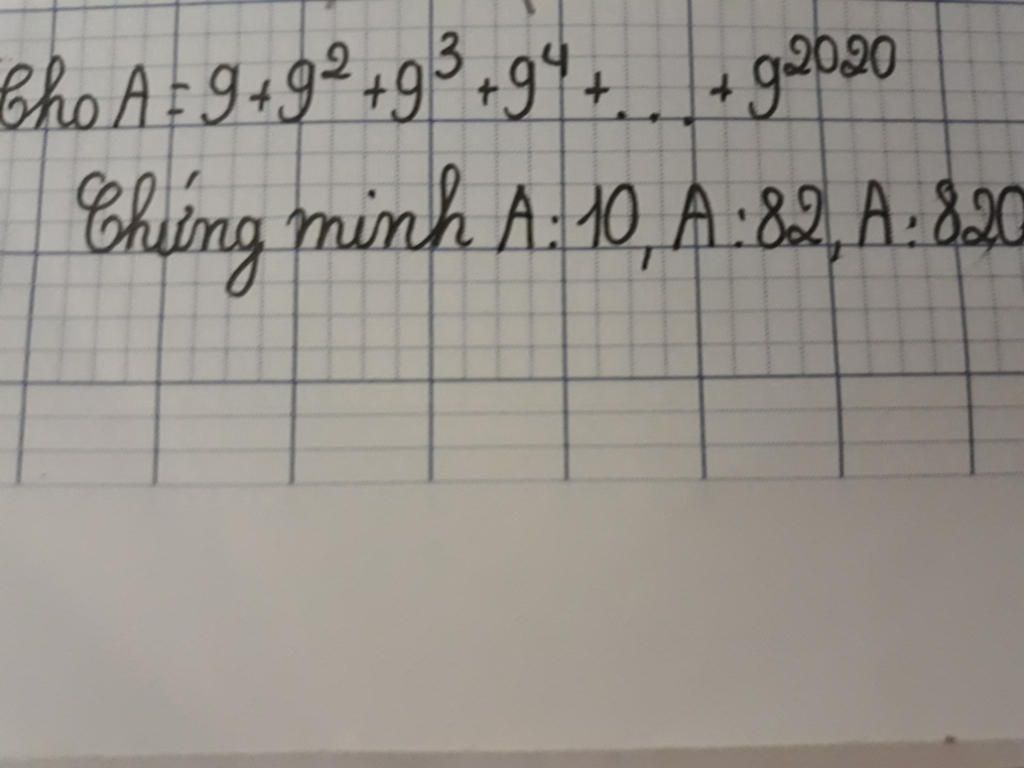 Cho A = 9 + 9² + 9³ + 9⁴ + ... + 9²⁰²⁰
Chứng minh A : 10, A : 82, A : 820